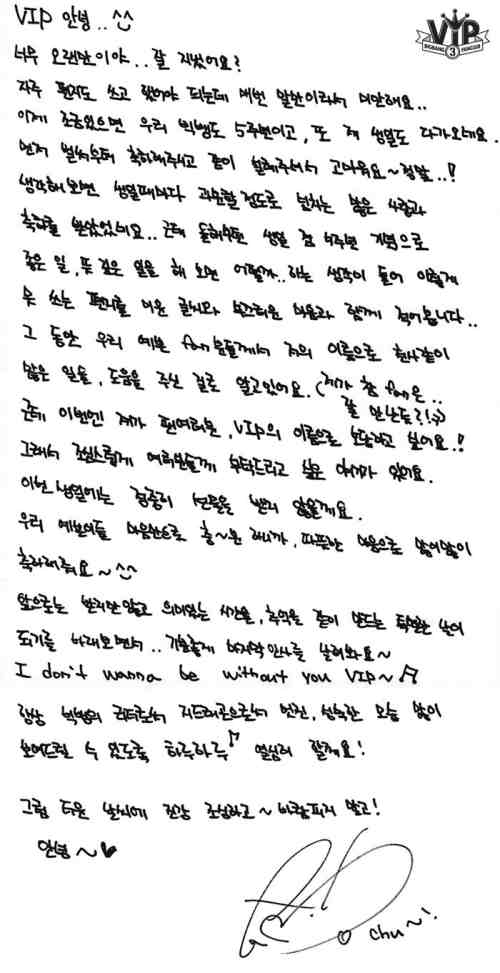 VIP 안녕..^^
VIP
BIGBANG 3 FANCLUB
너무 오랜만이야.. 잘 지냈어요?
자주 편지도 쓰고 했어야 되는데 매번 말뿐이라서 미안해요..
이제 조금있으면 우리 빅뱅도 5주년이고, 또 제 생일도 다가오네요.
먼저 벌써부터 축하해주시고 같이 설레주셔서 고마워요~ 정말..!
생각해보면 생일때마다 과분할 정도로 넘치는 많은 사랑과
축하를 받았었네요.. 근데 올해부턴 생일 겸 5주년 기념으로
좋은 일, 뜻 깊은 일을 해 보면 어떨까.. 하는 생각이 들어 이렇게
못 쓰는 편지를 미운 글씨와 부끄러운 마음과 함께 적어봅니다..
그 동안 우리 예쁜 fan분들께서 저의 이름으로 천사같이
많은 일을, 도움을 주신 걸로 알고있어요. (제가 참 fan은..
잘 만난듯?!;)
근데 이번엔 제가 팬여러분, VIP의 이름으로 보답하고 싶어요.!
그래서 조심스럽게 여러분들께 부탁드리고 싶은 이야기가 있어요.
이번 생일에는 일종의 선물을 받지 않을게요.
우리 예쁜이들 마음만으로 충~분 하니까, 따뜻한 마음으로 많이많이
축하해줘요~^^
앞으로는 받지만 않고 의미있는 시간을, 추억을 같이 만드는 특별한 날이
되기를 바래보면서.. 기분좋게 마지막 인사를 날려봐요~
I don't wanna be without you VIP~♬
항상 빅뱅의 리더로서 지드래곤으로서 멋진, 성숙한 모습 많이
보여드릴 수 있도록 하루하루♪ 열심히 할께요!
그럼 더운 날씨에 건강 조심하고~ 바람피지 말고!
안녕~♥
chu~!